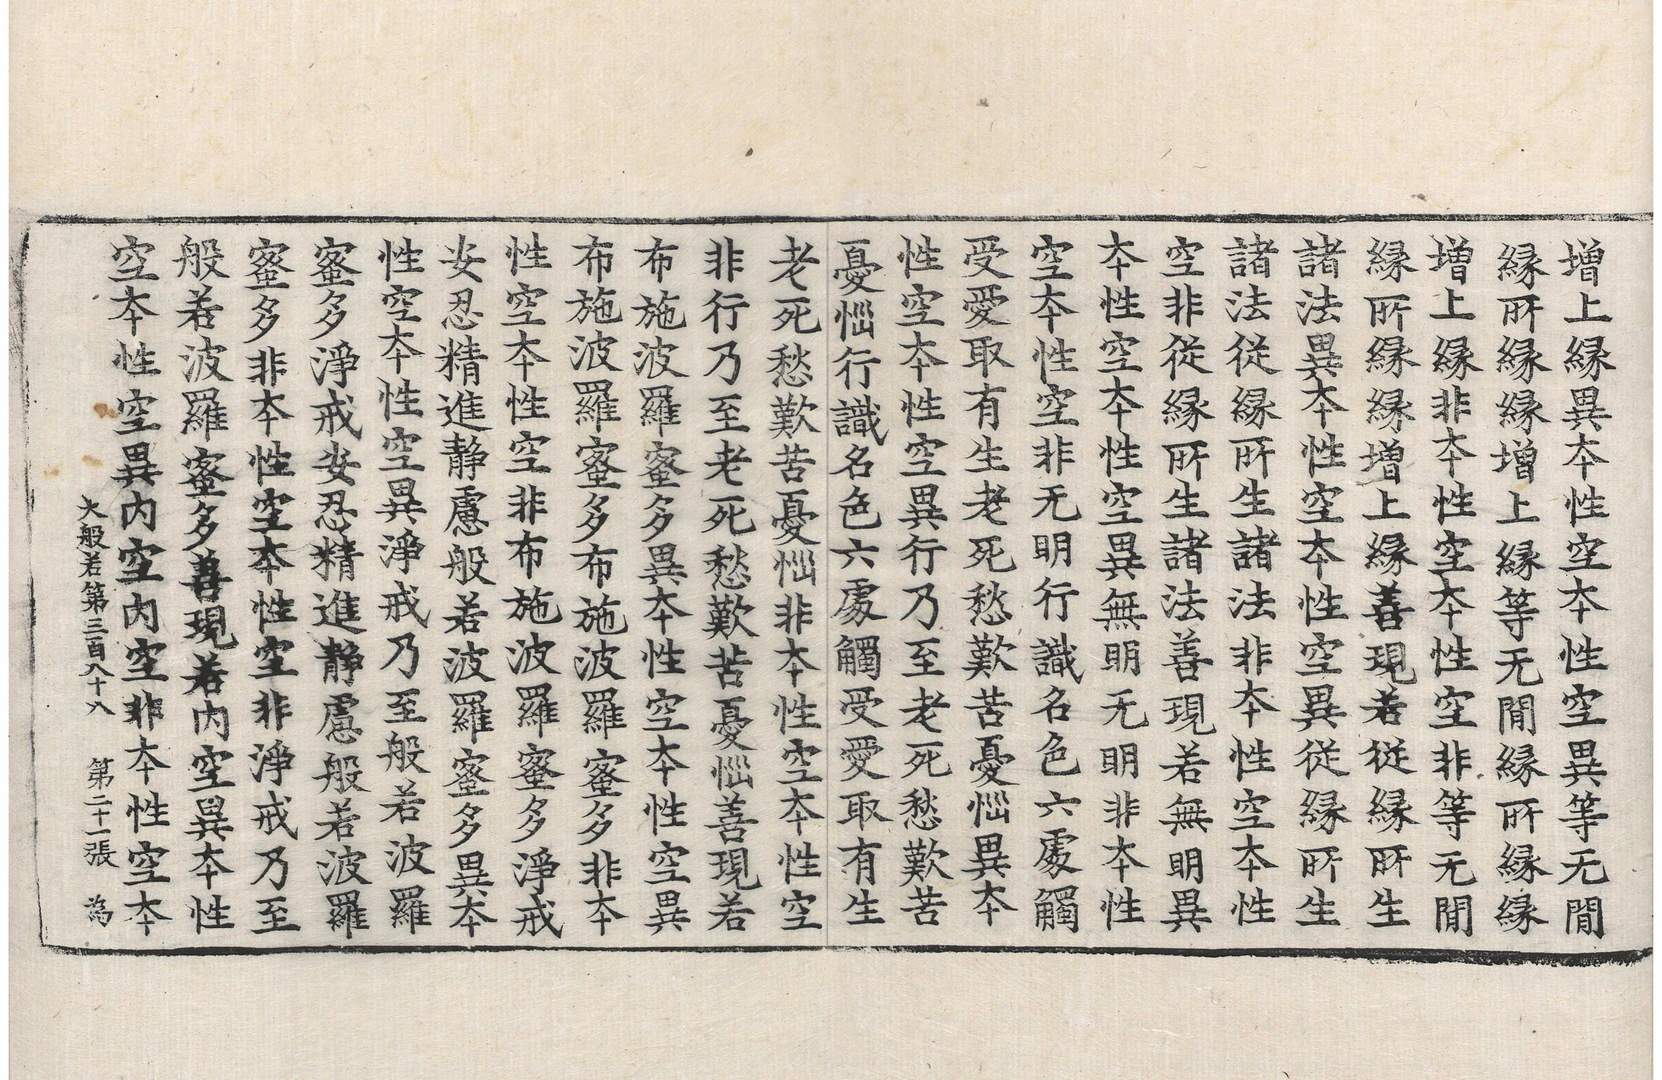 增上縁異夲性空夲性空異等无閒
縁所縁縁增上縁等无閒縁所縁縁
增上縁非夲性空夲性空非等无閒
縁所縁縁增上縁善現若從縁所生
諸法異夲性空夲性空異從縁所生
諸法從縁所生諸法非夲性空夲性
空非從縁所生諸法善現若無明異
夲性空夲性空異無明无明非夲性
空夲性空非无明行識名色六處觸
受愛取有生老死愁歎苦憂惱異夲
性空夲性空異行乃至老死愁歎苦
憂惱行識名色六處觸受愛取有生
老死愁歎苦憂惱非夲性空夲性空
非行乃至老死愁歎苦憂惱善現若
布施波羅蜜多異夲性空夲性空異
布施波羅蜜多布施波羅蜜多非夲
性空夲性空非布施波羅蜜多淨戒
安忍精進靜慮般若波羅蜜多異夲
性空夲性空異淨戒乃至般若波羅
蜜多淨戒安忍精進靜慮般若波羅
蜜多非夲性空夲性空非淨戒乃至
般若波羅蜜多善現若内空異夲性
空夲性空異内空内空非夲性空夲
大般若第三百八十八 第二十一張 為